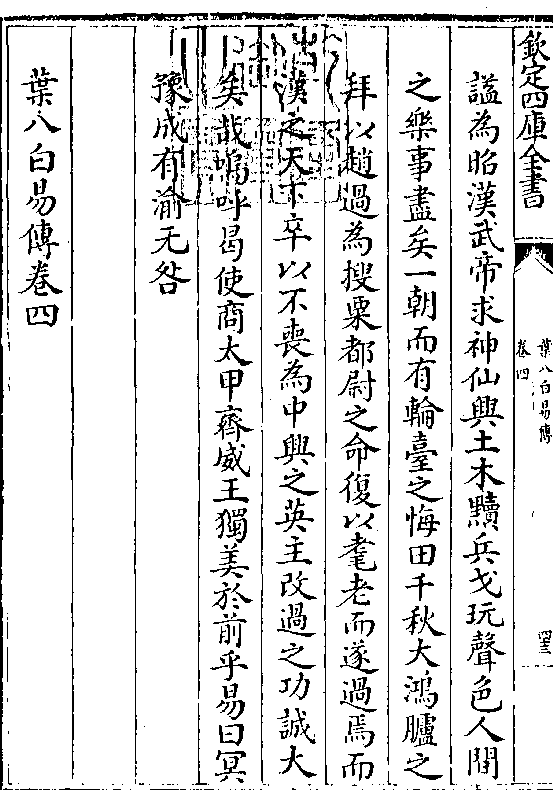 欽定四庫全書
葉八白易傳
卷四
四三
諡為昭漢武帝求神仙興土木黷兵戈玩聲色人間
之樂事盡矣一朝而有輪臺之悔田千秋大鴻臚之
拜以趙過為搜粟都尉之命復以耄老而遂過焉而
漢之天下卒以不喪為中興之英主改過之功誠大
矣哉嗚呼曷使商太甲齊威王獨美於前乎易曰冥
豫成有渝无咎
葉八白易傳卷四